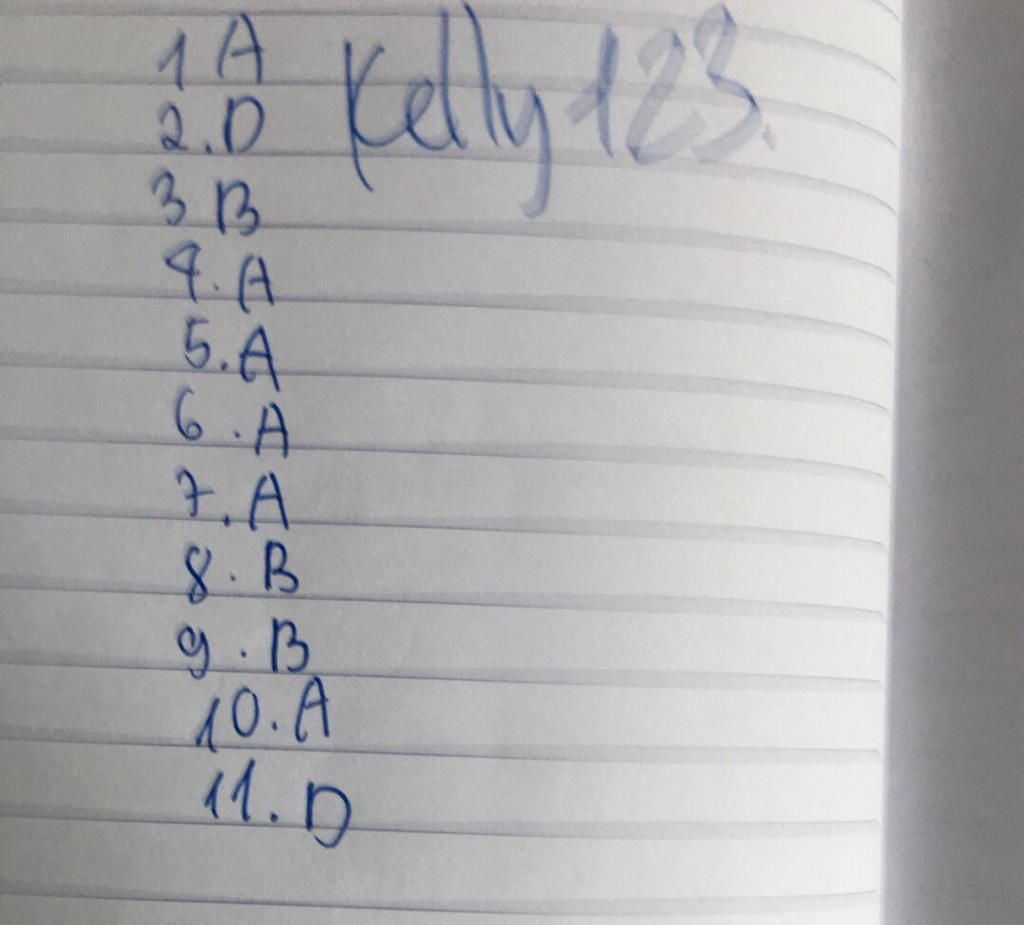 1 A
Kelly 123.
2. D
3 B
4. A
5. A
6. A
7. A
8. B
9. B
10. A
11. D